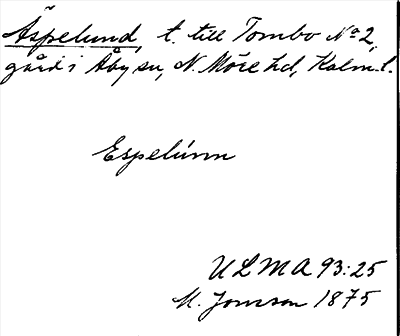 Äspelund, t. till Tombo No 2,
gård i Åby sn, N. Möre hd, Kalm. l.
Espelúnn
ULMA 93:25
M. Jonsson 1875